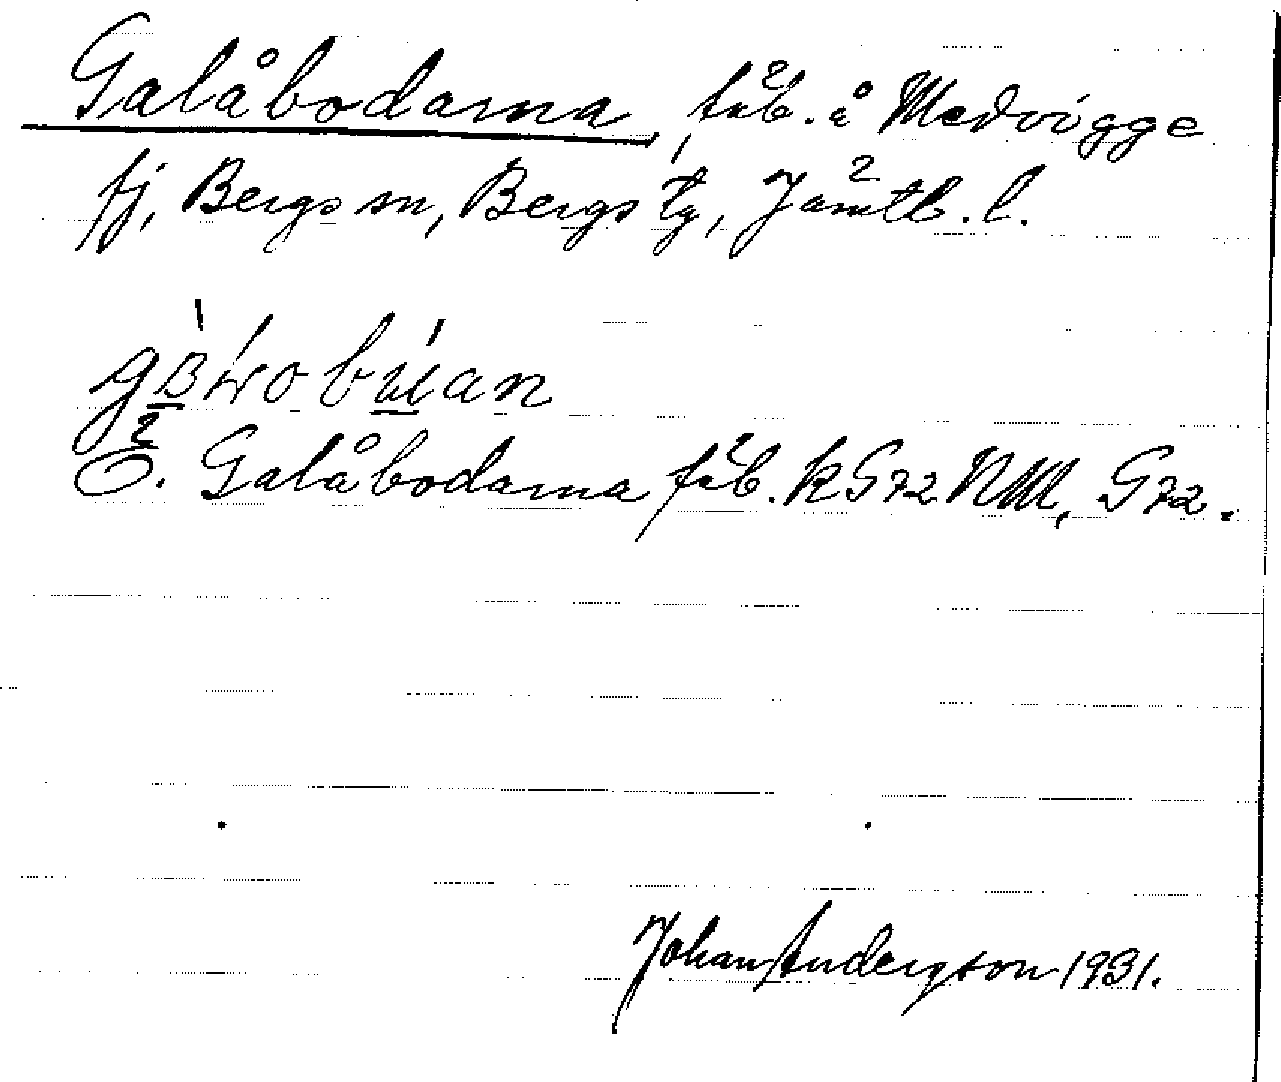 Galåbodarna, fäb. å Medvigge
fj, Bergs sn, Bergs tg, Jämtl. l.
Ö. Galåbodarna fäb. KG72NM, G72.
Johan Anderzson 1931.